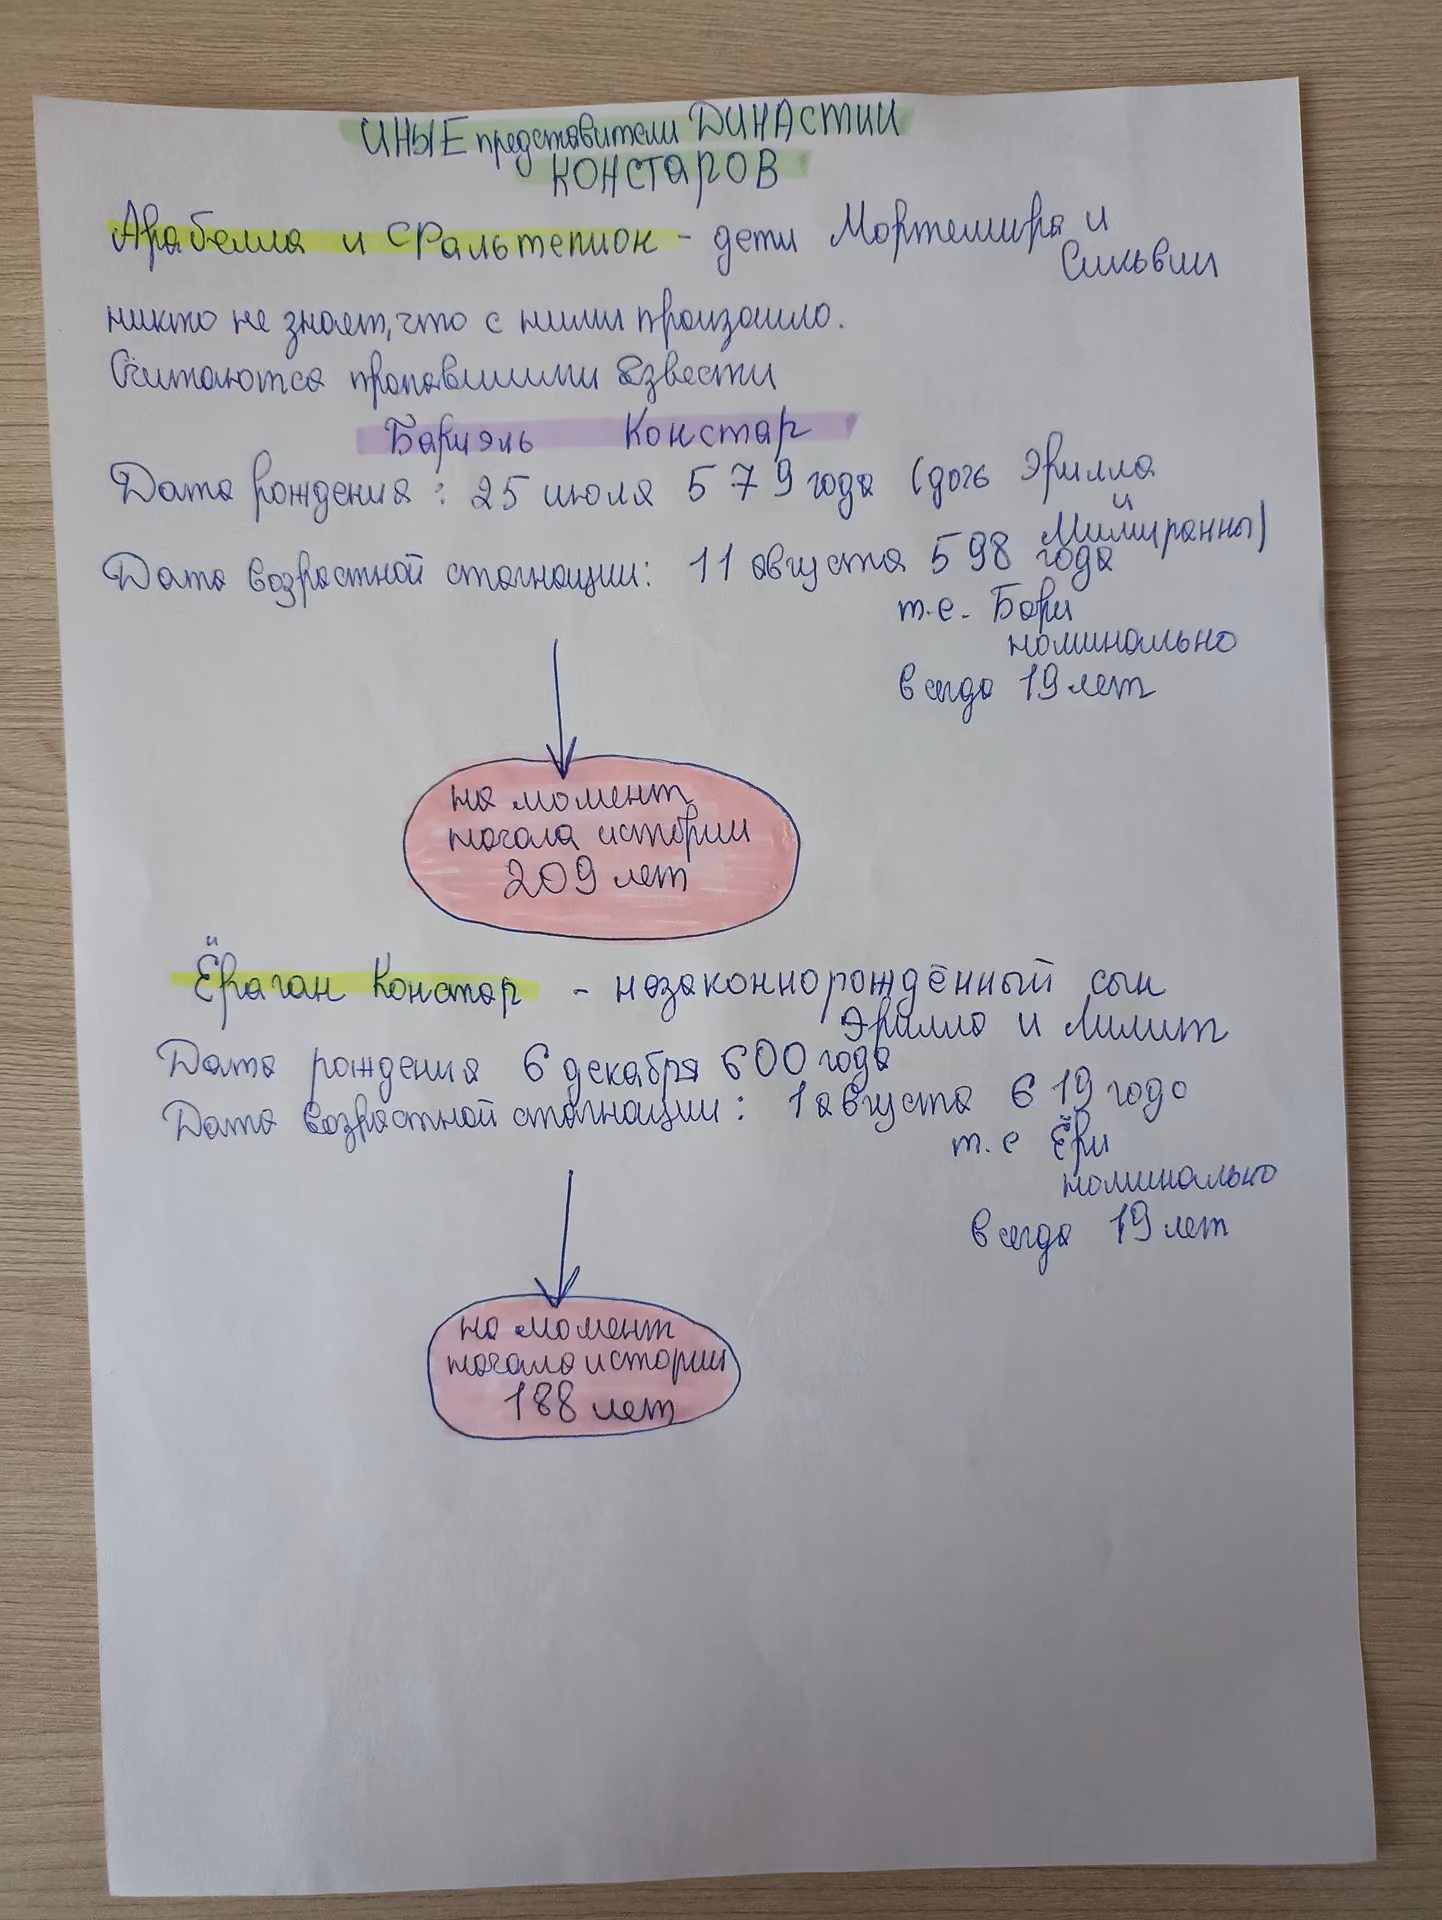 ИНЫЕ представители ДИНАСТИИ
КОНСТАРОВ
Арабелла и Фральтепион - дети Мортемира и
Сильвии
никто не знает, что с ними произошло.
Считаются пропавшими безвести
Бариэль Констар
Дата рождения: 25 июля 579 года (дочь Эрилла
и
Миййранны)
Дата возрастной стагнации: 11 августа 598 года
т.е. Бари
номинально
всегда 19 лет
на момент
начала истории
209 лет
Ёраган Констар - незаконнорождённый сын
Эрилла и Лилит
Дата рождения 6 декабря 600 года
Дата возрастной стагнации: 1 августа 619 года
т.е Ёри
номинально
всегда 19 лет
на момент
начала истории
188 лет